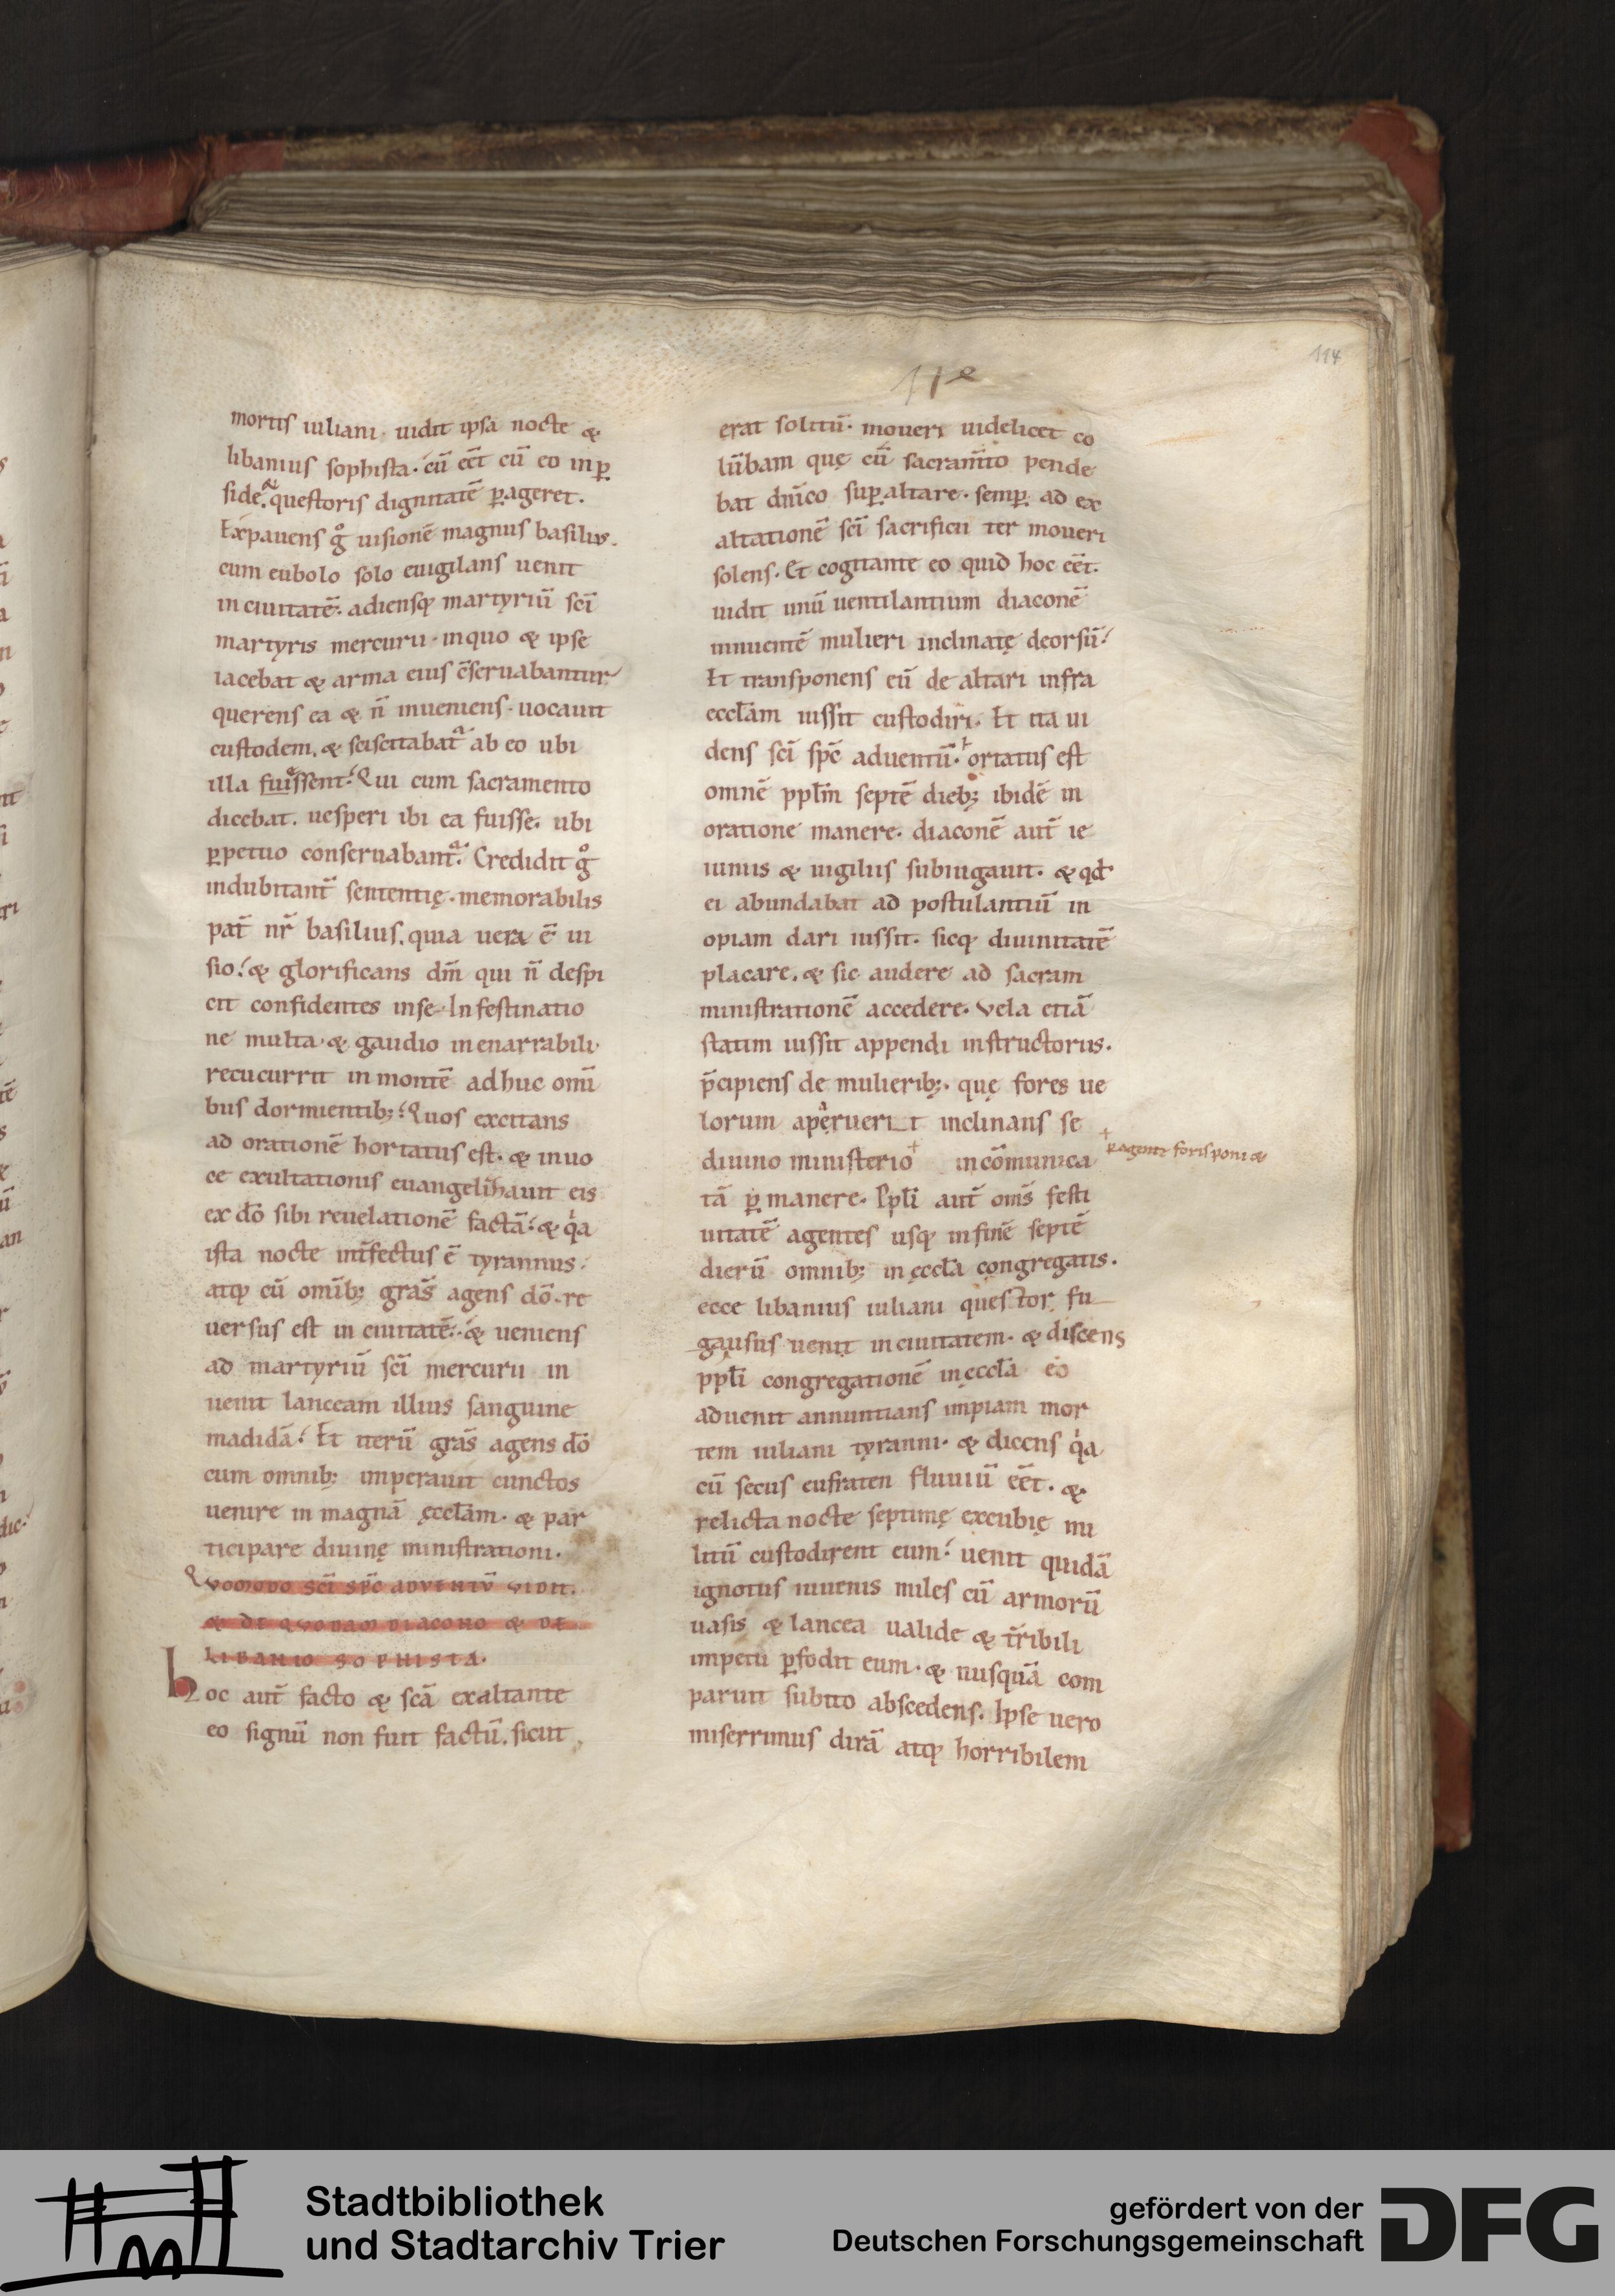 114
mortis iuliani· uidit ipsa nocte &
libanius sophista· cū eēt cū eo in ꝑ
side· questoris dignitatē ꝑageret.
Expauens gͦ uisionē magnus basilius.
cum eubolo solo euigilans uenit
in ciuitatē· adiensq; martyriū sc̄i
martyris mercurii· in quo & ipse
iacebat & arma eius c̄seruabantur
querens ea & n̄ inueniens· uocauit
custodem. & sciscitabat̄ ab eo ubi
illa fuissent· Qui cum sacramento
dicebat. uesperi ibi ea fuisse· ubi
ꝑpetuo conseruabant̄· Credidit gͦ
indubitant̄ sententię· memorabilis
pat̄ nr̄ basilius. quia uera ē ui
sio· & glorificans dm̄ qui n̄ despi
cit confidentes in se· In festinatio
ne multa· & gaudio inenarrabili·
recucurrit in montē adhuc omi
bus dormientib;· Quos excitans
ad orationē hortatus est· & in uo
ce exultationis euangelizauit eis
ex dō sibi reuelationē factā· & qͥa
ista nocte int̄fectus ē tyrannus·
atq; cū omīb; grās agens dō· re
uersus est in ciuitatē· & ueniens
ad martyriū sc̄i mercurii in
uenit lanceam illius sanguine
madidā· Et iterū grās agens dō
cum omnib; imperauit cunctos
uenire in magnā ęccl̄am· & par
ticipare diuinę ministrationi·
QVOMODO SC̄I SPC̄ ADVENTV̄ VIDIT.
& DE QVODAM DIACONO & DE
LIBANIO SOPHISTA·
hoc aut̄ facto & scā exaltante
eo signū non fuit factū. sicut
erat solitū· moueri uidelicet co
lūbam quę cū sacram̄to pende
bat dn̄ico suꝑ altare· semꝑ ad ex
altationē sc̄i sacrificii ter moueri
solens· Et cogitante eo quid hoc eēt·
uidit unū uentilantium diaconē
innuentē mulieri inclinatę deorsū·
Et transponens eū de altari infra
eccl̄am iussit custodiri· Et ita ui
dens sc̄i spc̄ aduentū· ortatus est
omnē ppl̄m septē dieb; ibidē in
oratione manere· diaconē aut̄ ie
iuniis & uigiliis subiugauit· & qd̄
ei abundabat ad postulantiū in
opiam dari iussit· sicq; diuinitatē
placare. & sic audere ad sacram
ministrationē accedere· Vela etiā
statim iussit appendi instructoriis·
p̄cipiens de mulierib;· quę fores ue
lorum aperuerit inclinans se
diuino ministerio incōmunica
ꝑagente foris poni &
tā ꝑmanere· Ppl̄i aut̄ om̄s festi
uitatē agentes usq; in finē septē
dierū omnib; in ęccl̄a congregatis·
ecce libanius iuliani questor fu
gausus uenit in ciuitatem· & discens
ppl̄i congregationē in ęccl̄a eo
aduenit annuntians impiam mor
tem iuliani tyranni· & dicens qͥa
cū secus eufraten fluuiū eēt· &
relicta nocte septimę excubię mi
litū custodirent eum· uenit quidā
ignotus iuuenis miles cū armorū
uasis & lancea ualide & t̄ribili
impetu ꝑfodit eum· & nusquā com
paruit subito abscedens· Ipse uero
miserrimus dirā atq; horribilem
Stadtbibliothek
und Stadtarchiv Trier
gefördert von der
Deutschen Forschungsgemeinschaft
DFG